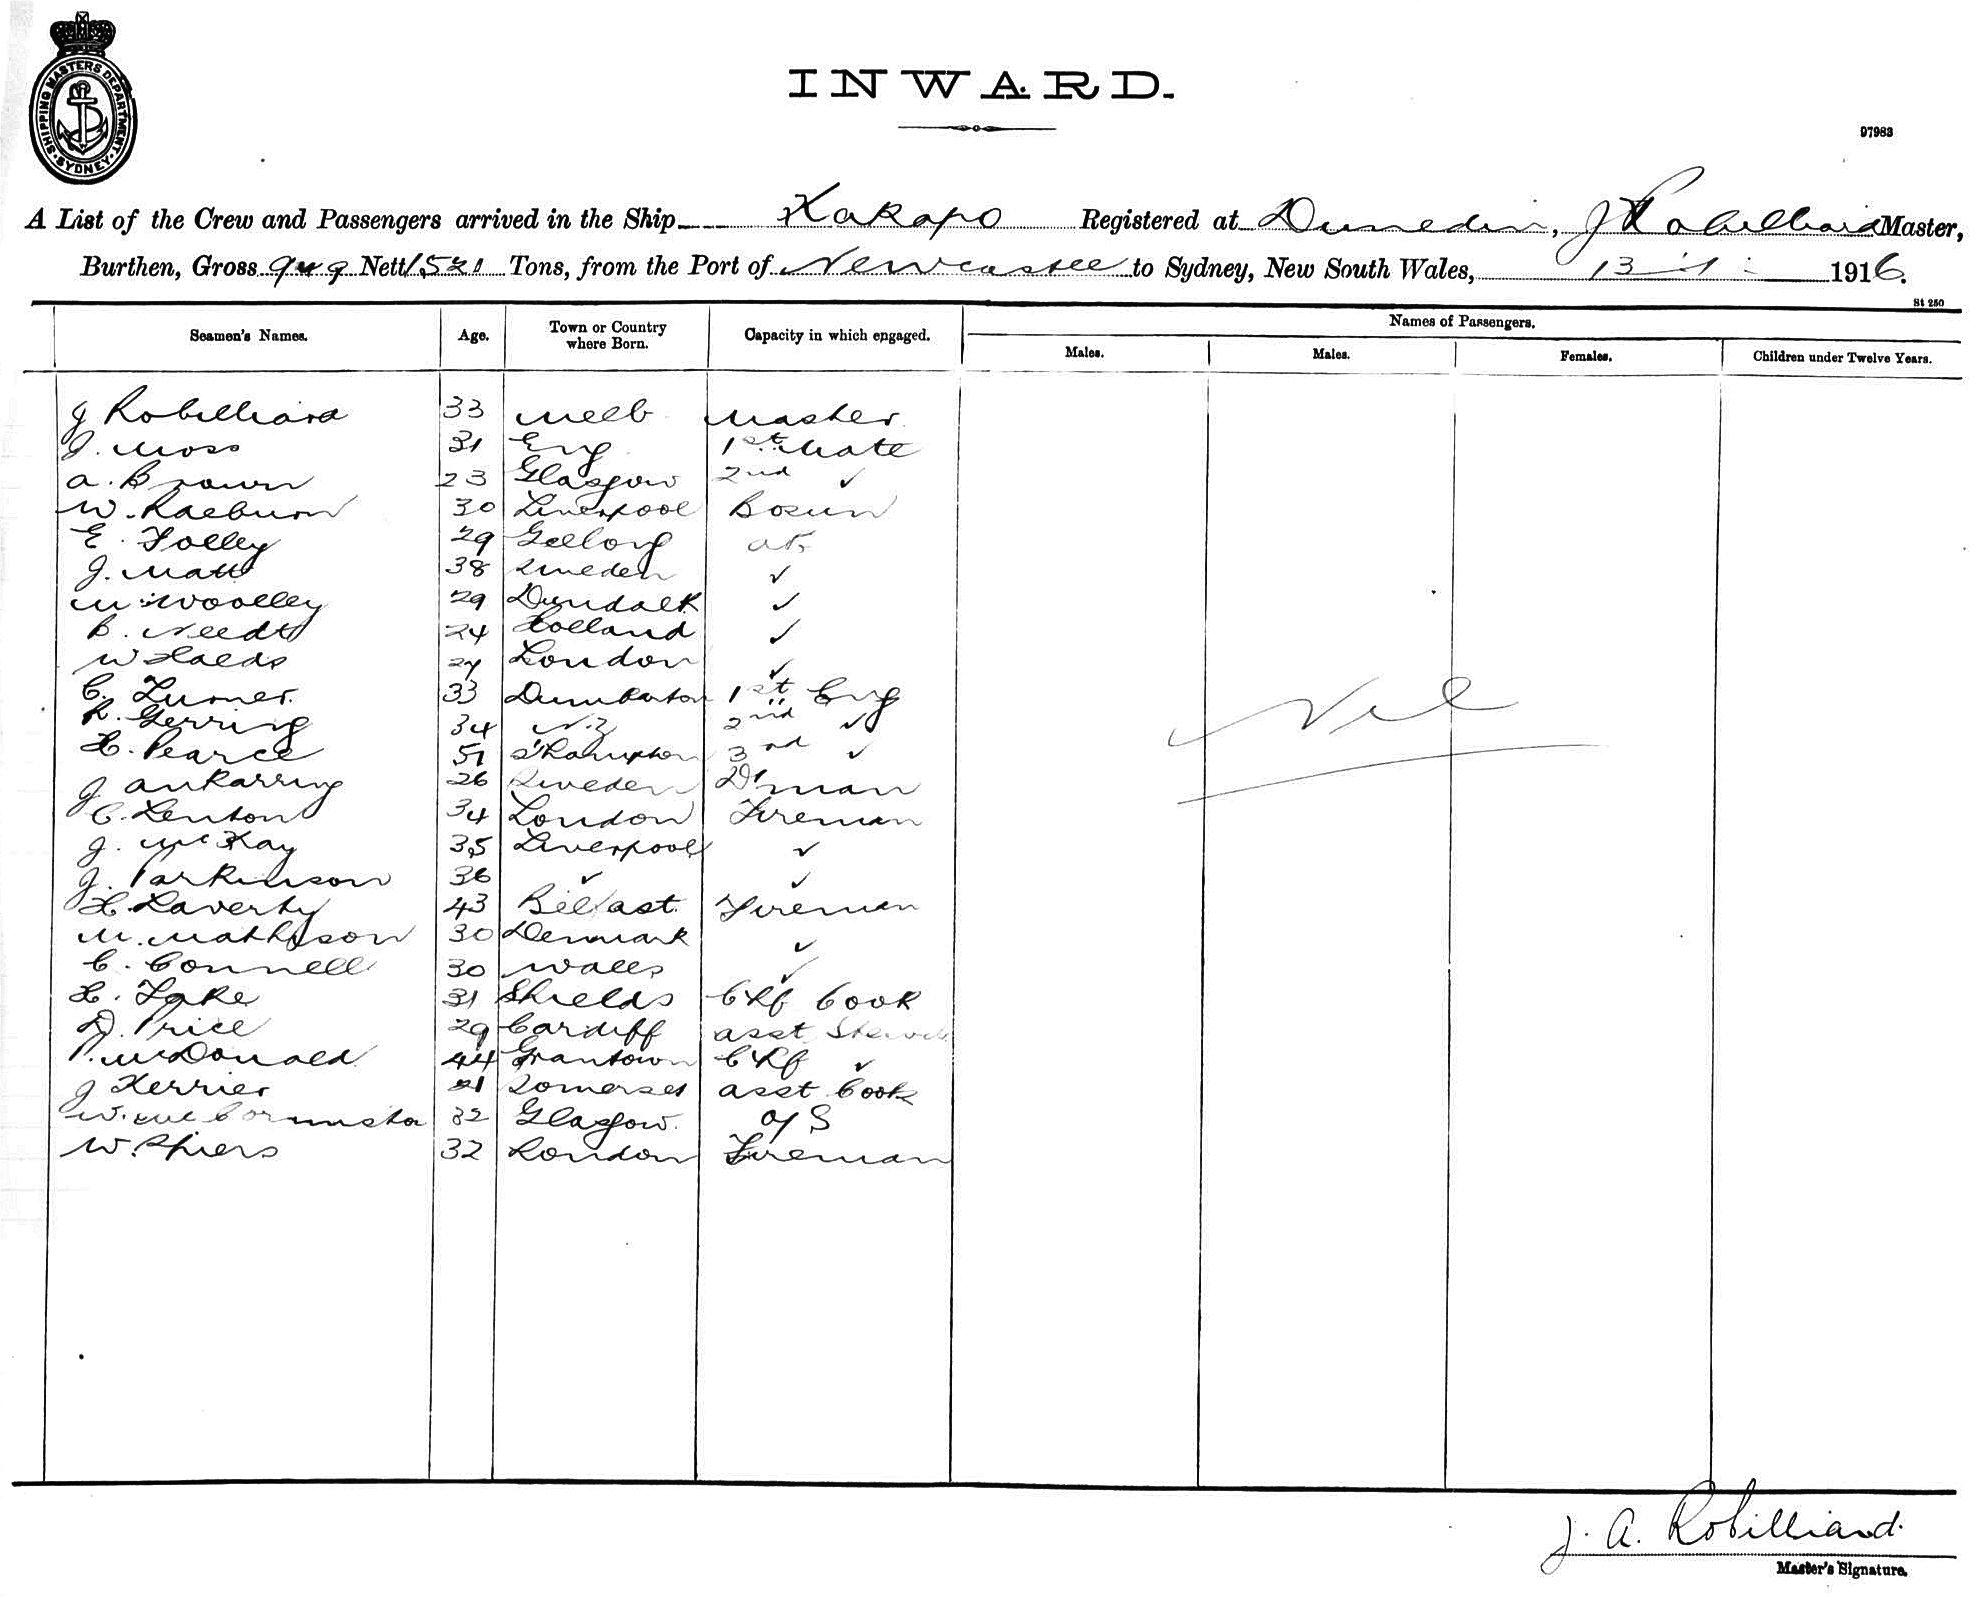 SHIPPING MASTERS DEPARTMENT. SYDNEY
INWARD.
97983
A List of the Crew and Passengers arrived in the Ship Kakapo Registered at Dunedin, J Robilliard Master,
Burthen, Gross Nett 1520 Tons, from the Port of Newcastle to Sydney, New South Wales, 13 1 1916.
St 250
Seamen's Names. Age. Town or Country where Born. Capacity in which engaged. Names of Passengers.
Males. Males. Females. Children under Twelve Years.
J Robilliard 33 Melb Master
J. Moss 31 Eng 1st Mate
A. Brown 23 Glasgow 2nd ✓
W. Raeburn 30 Liverpool Bosun
E. Folley 29 Geelong
J. Matt 38 Sweden ✓
M. Woolley 29 Dundalk ✓
B. Needt 24 Holland ✓
W 27 London ✓
C. Turner 33 Dumbarton 1st Eng
R. Gerring 34 N.Z 2nd ✓
H. Pearce 51 S'hampton 3rd ✓
J Ankarring 26 Sweden D'man
C. Lenton 34 London Fireman
J. McKay 35 Liverpool ✓
J. Parkinson 36 ✓ ✓
H. Laverty 43 Belfast Fireman
M. Mathison 30 Denmark ✓
C. Connell 30 Wales ✓
H. Lake 31 Shields Chf Cook
D. Price 29 Cardiff asst Stewd
McDonald 44 Grantown Chf ✓
J Kerrier 21 Somerset asst Cook
W. 32 Glasgow. O/S
W. Spiers 32 London Fireman
Nil
J. A. Robilliard.
Master's Signature.